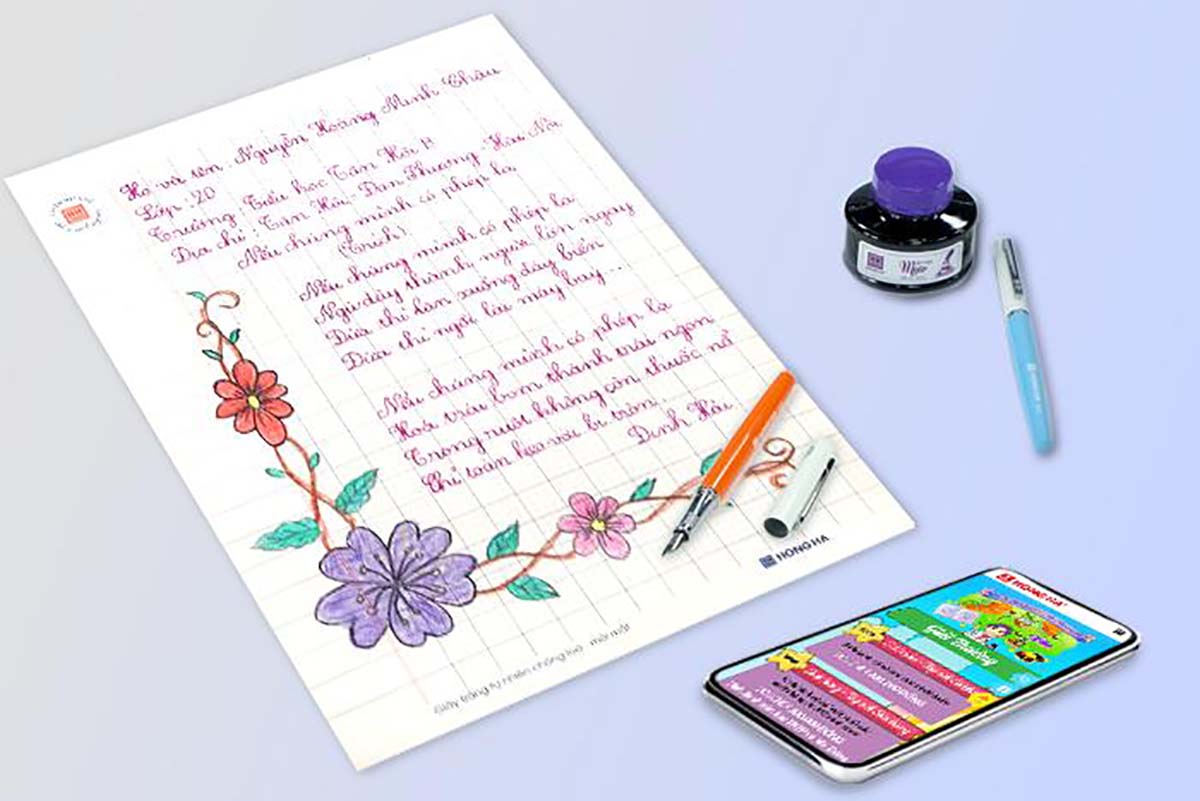 Họ và tên : Nguyễn Hoàng Minh Châu
Lớp : 2D
Trường : Tiểu học Tân Hội A
Địa chỉ : Tân Hội - Đan Phượng - Hà Nội
Nếu chúng mình có phép lạ
(Trích)
Nếu chúng mình có phép lạ
Ngủ dậy thành người lớn ngay
Đứa thì lặn xuống đáy biển
Đứa thì ngồi lái máy bay...
Nếu chúng mình có phép lạ
Hoá trái bom thành trái ngon
Trong ruột không còn thuốc nổ
Chỉ toàn kẹo với bi tròn.
Định Hải
HONG HA
Giấy trắng tự nhiên chống loá - mỏi mắt
Mực
HONG HA